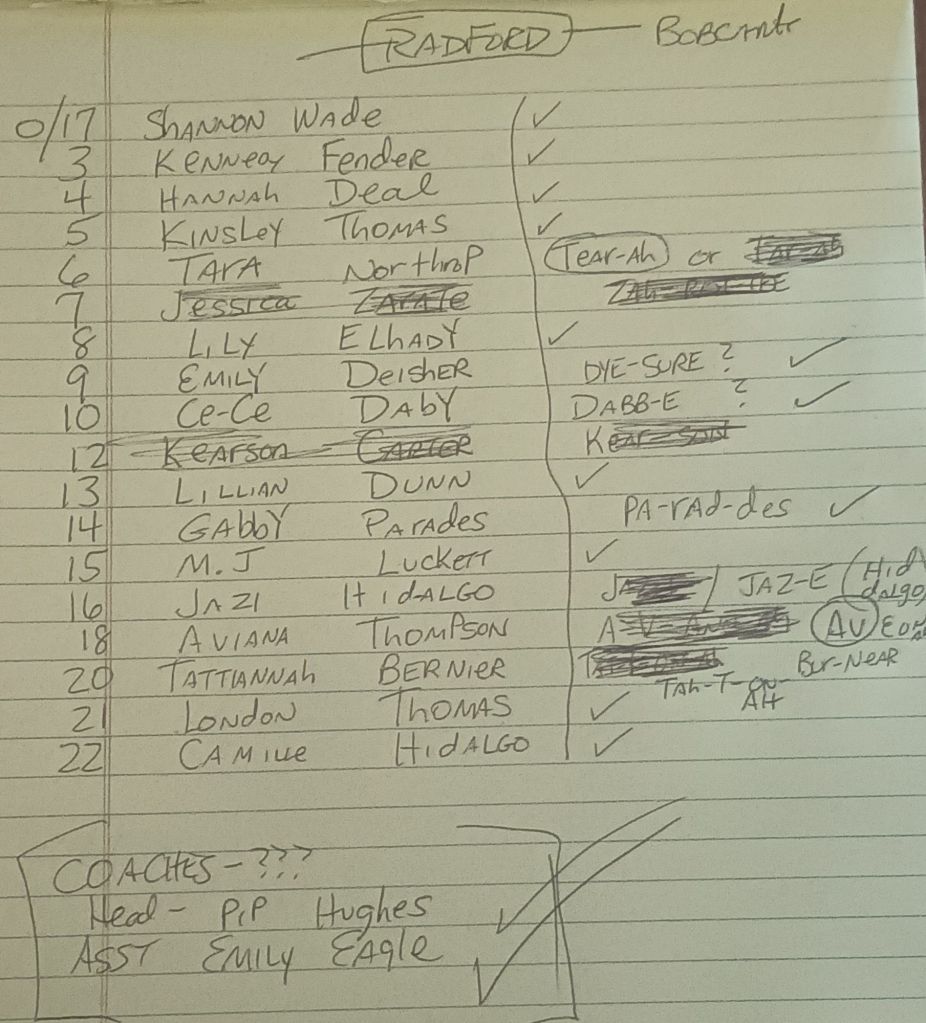 RADFORD Bobcats
0/17 Shannon Wade ✓
3 Kennedy Fender ✓
4 Hannah Deal ✓
5 Kinsley Thomas ✓
6 Tara Northrop Tear-Ah or
7 Jessica Zarate
8 Lily Elhady ✓
9 Emily Deisher DYE-SURE ? ✓
10 Ce-Ce Daby DABB-E ? ✓
12 Kearson Carter Kear-son
13 Lillian Dunn ✓
14 Gabby Parades PA-rAd-des ✓
15 M.J Luckett ✓
16 Jazi Hidalgo / JAZ-E (Hid
dalgo)
18 Aviana Thompson AV
20 Tattiannah Bernier Bur-Near
Tah-T-on-
AH
21 London Thomas ✓
22 Camille Hidalgo ✓
COACHES - ???
Head - Pip Hughes ✓
ASST Emily Eagle ✓